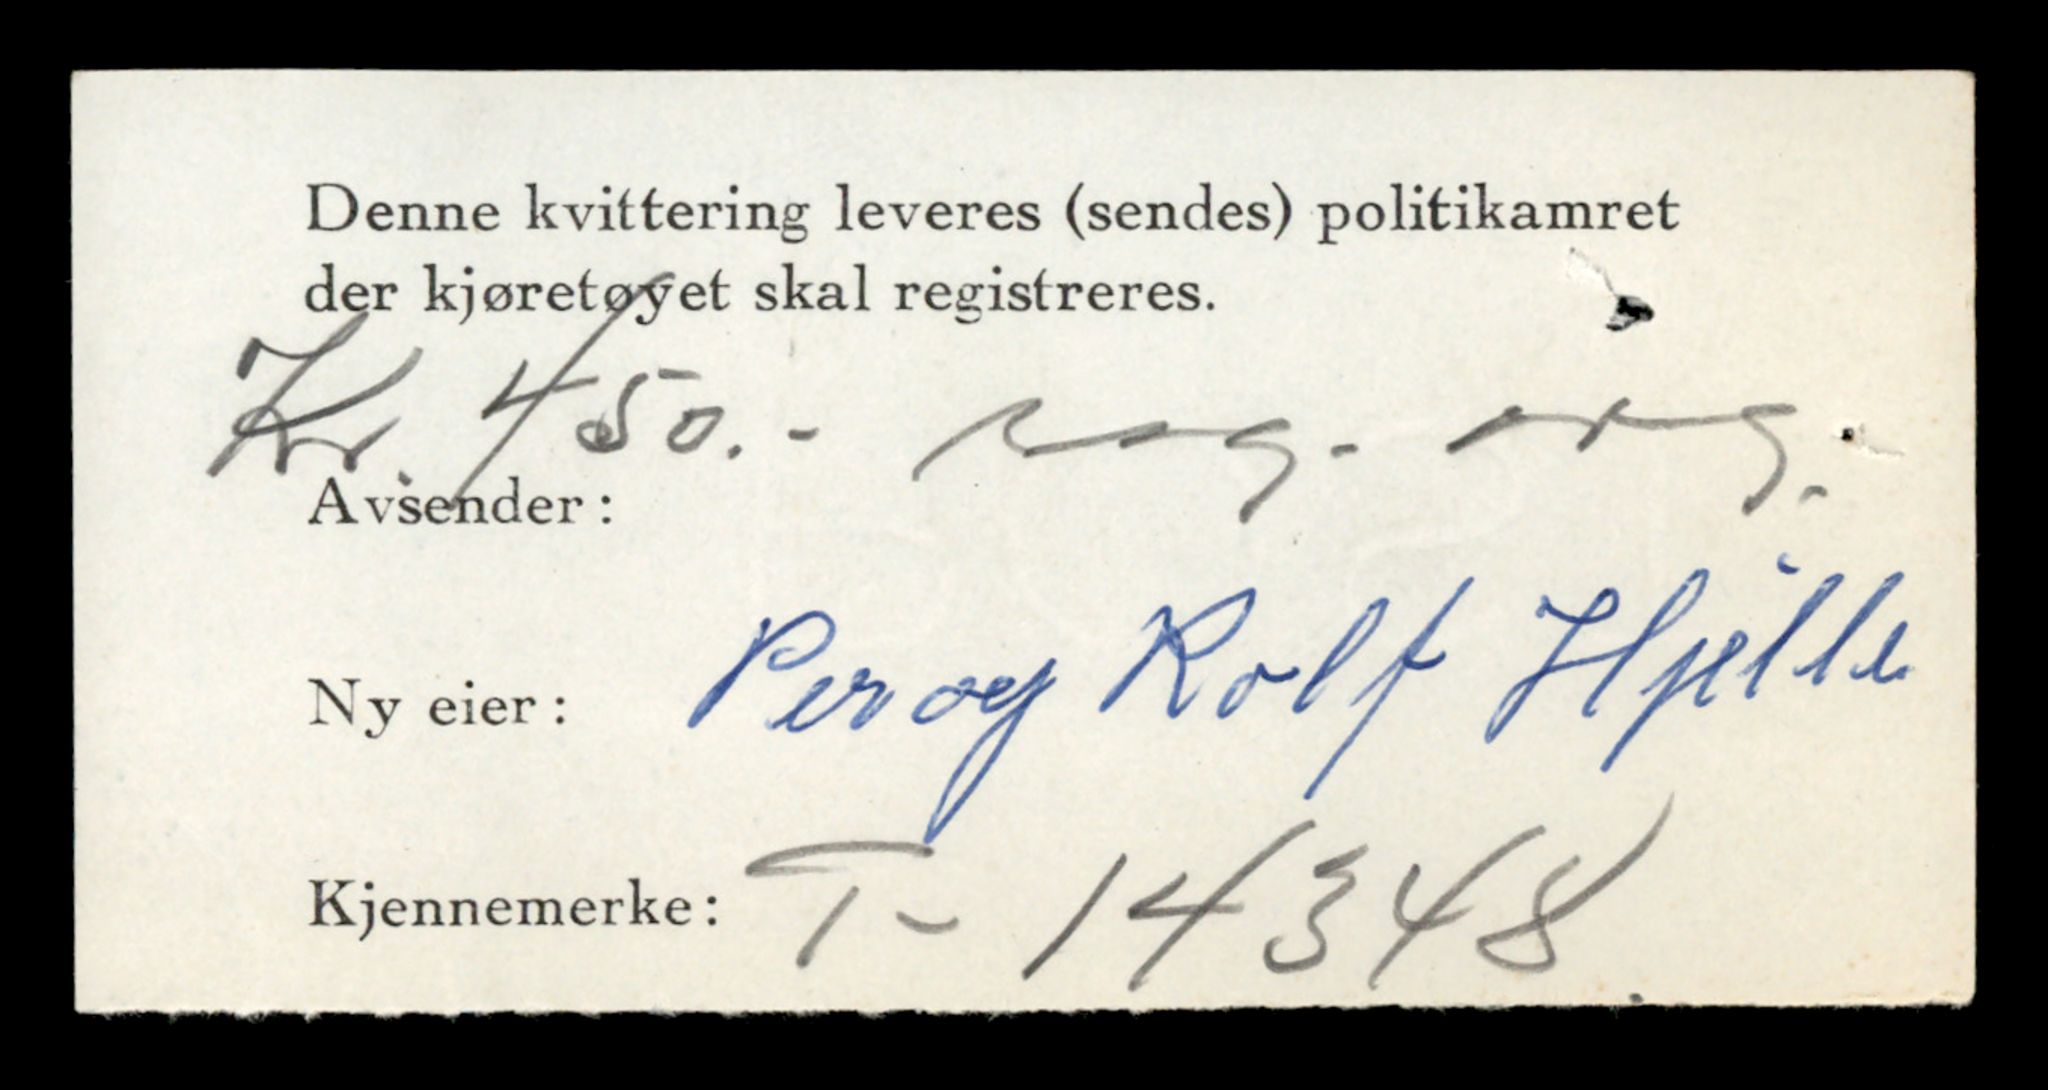 Denne kvittering leveres (sendes) politikamret
der kjøretøyet skal registreres.
Kr. 450.-
Avsender:
Ny eier: Per og Rolf Hjelle
Kjennemerke: T- 14348